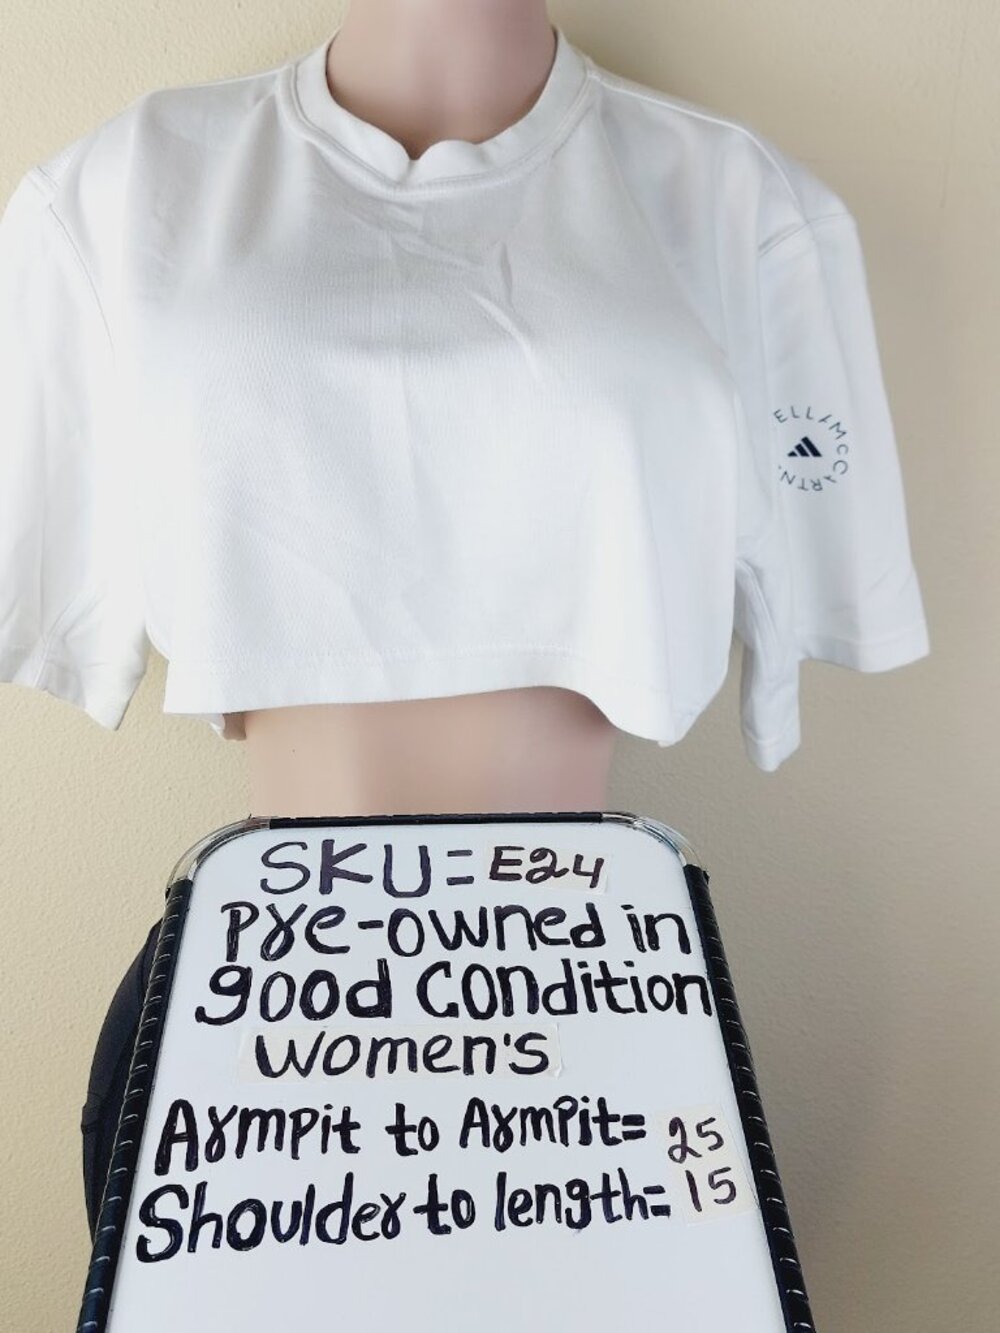 ELLA McCARTN
SKU= E24
Pre-owned in
good Condition
Women's
Armpit to Armpit= 25
Shoulder to length= 15